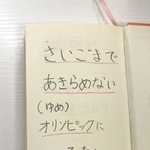 さいごまで
あきらめない
(ゆめ)
オリンピックに